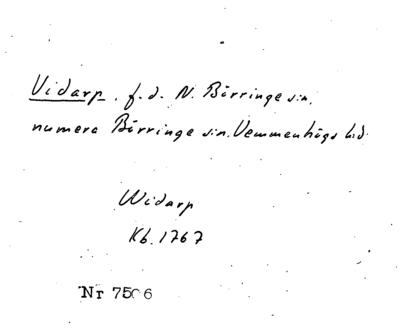 Vidarp. f.d. N. Börringe sn.
numera Börringe sn. Vemmenhögs hd.
Widarp
Kb. 1767
Nr 7506